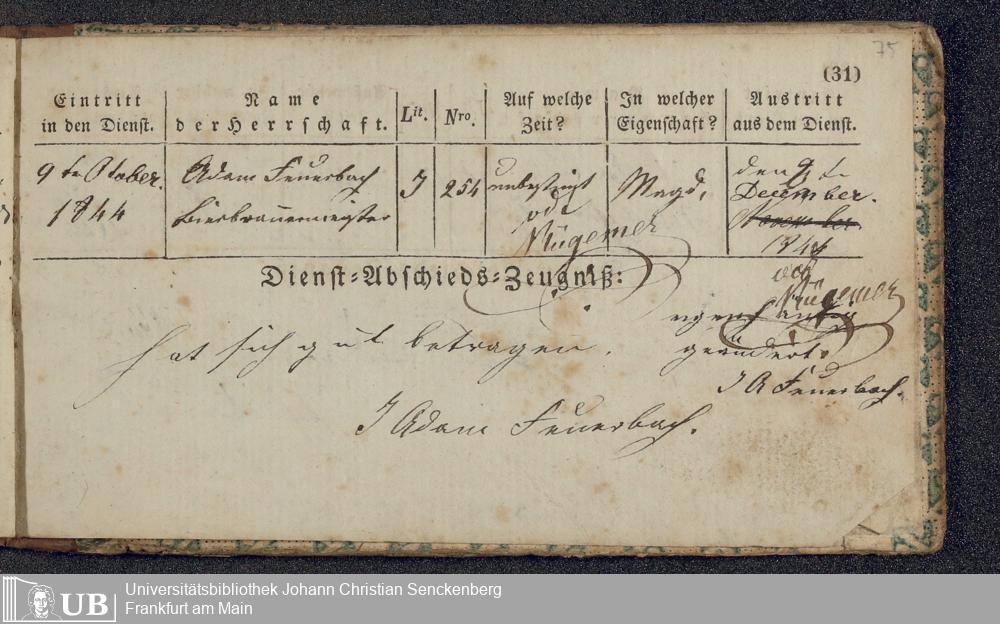 75
(31)
Eintritt in den Dienst.
Name der Herrschaft.
Lit.
Nro.
Auf welche Zeit?
In welcher Eigenschaft?
Austritt aus dem Dienst.
9te Otober. 1844
Adam Feuerbach Bierbrauermeister
J
254
unbestimt
Magd.
den 9te December. November 1844
Dienst-Abschieds-Zeugniß:
hat sich gut betragen.
geändert.
J A Feuerbach.
J Adam Feuerbach.
UB
Universitätsbibliothek Johann Christian Senckenberg
Frankfurt am Main